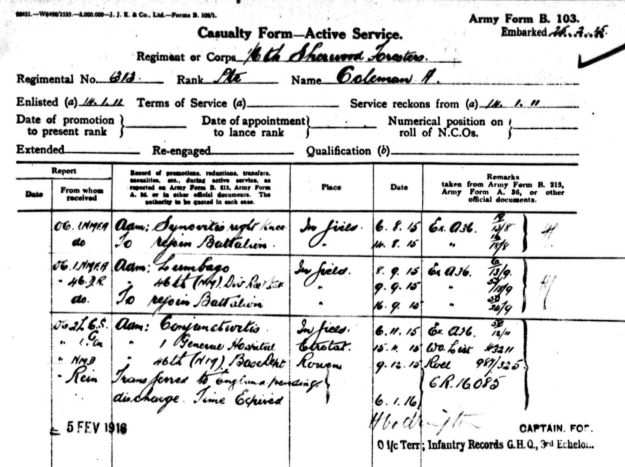 Army Form B. 103.
Casualty Form—Active Service.
Embarked
Regiment or Corps 6th Sherwood Foresters
Regimental No. 313 Rank Pte Name Coleman A.
Enlisted (a) 14.1.11 Terms of Service (a) Service reckons from (a) 14.1.11
Date of promotion to present rank
Date of appointment to lance rank
Numerical position on roll of N.C.Os.
Extended Re-engaged Qualification (b)
Report
Date
From whom received
Record of promotions, reductions, transfers, casualties, etc., during active service, as reported on Army Form B. 213, Army Form A. 36, or in other official documents. The authority to be quoted in each case.
Place
Date
Remarks
taken from Army Form B. 213, Army Form A. 36, or other official documents.
Adm: Synovitis right Knee In field. 6.8.15 Ex. A36. 13/8
do To rejoin Battalion " 14.8.15 "
Adm: Lumbago In field. 8.9.15 Ex A36. 13/9
" 46th (N.M) " 9.9.15 "
do. To rejoin Battalion " 16.9.15 "
Adm: Conjunctivitis In field. 6.11.15 Ex. A36.
" 1 General Hospital Etretat. 15.11.15 Wo. List H3211
" 46th (N.M) Base Dept Rouen 9.12.15 Roll 987/325
" Rein Transferred to England pending CR.16085
discharge. Time Expired 6.1.16
5 FEV 1916
CAPTAIN. FOR.
O i/c Terr; Infantry Records G.H.Q., 3rd Echelon.